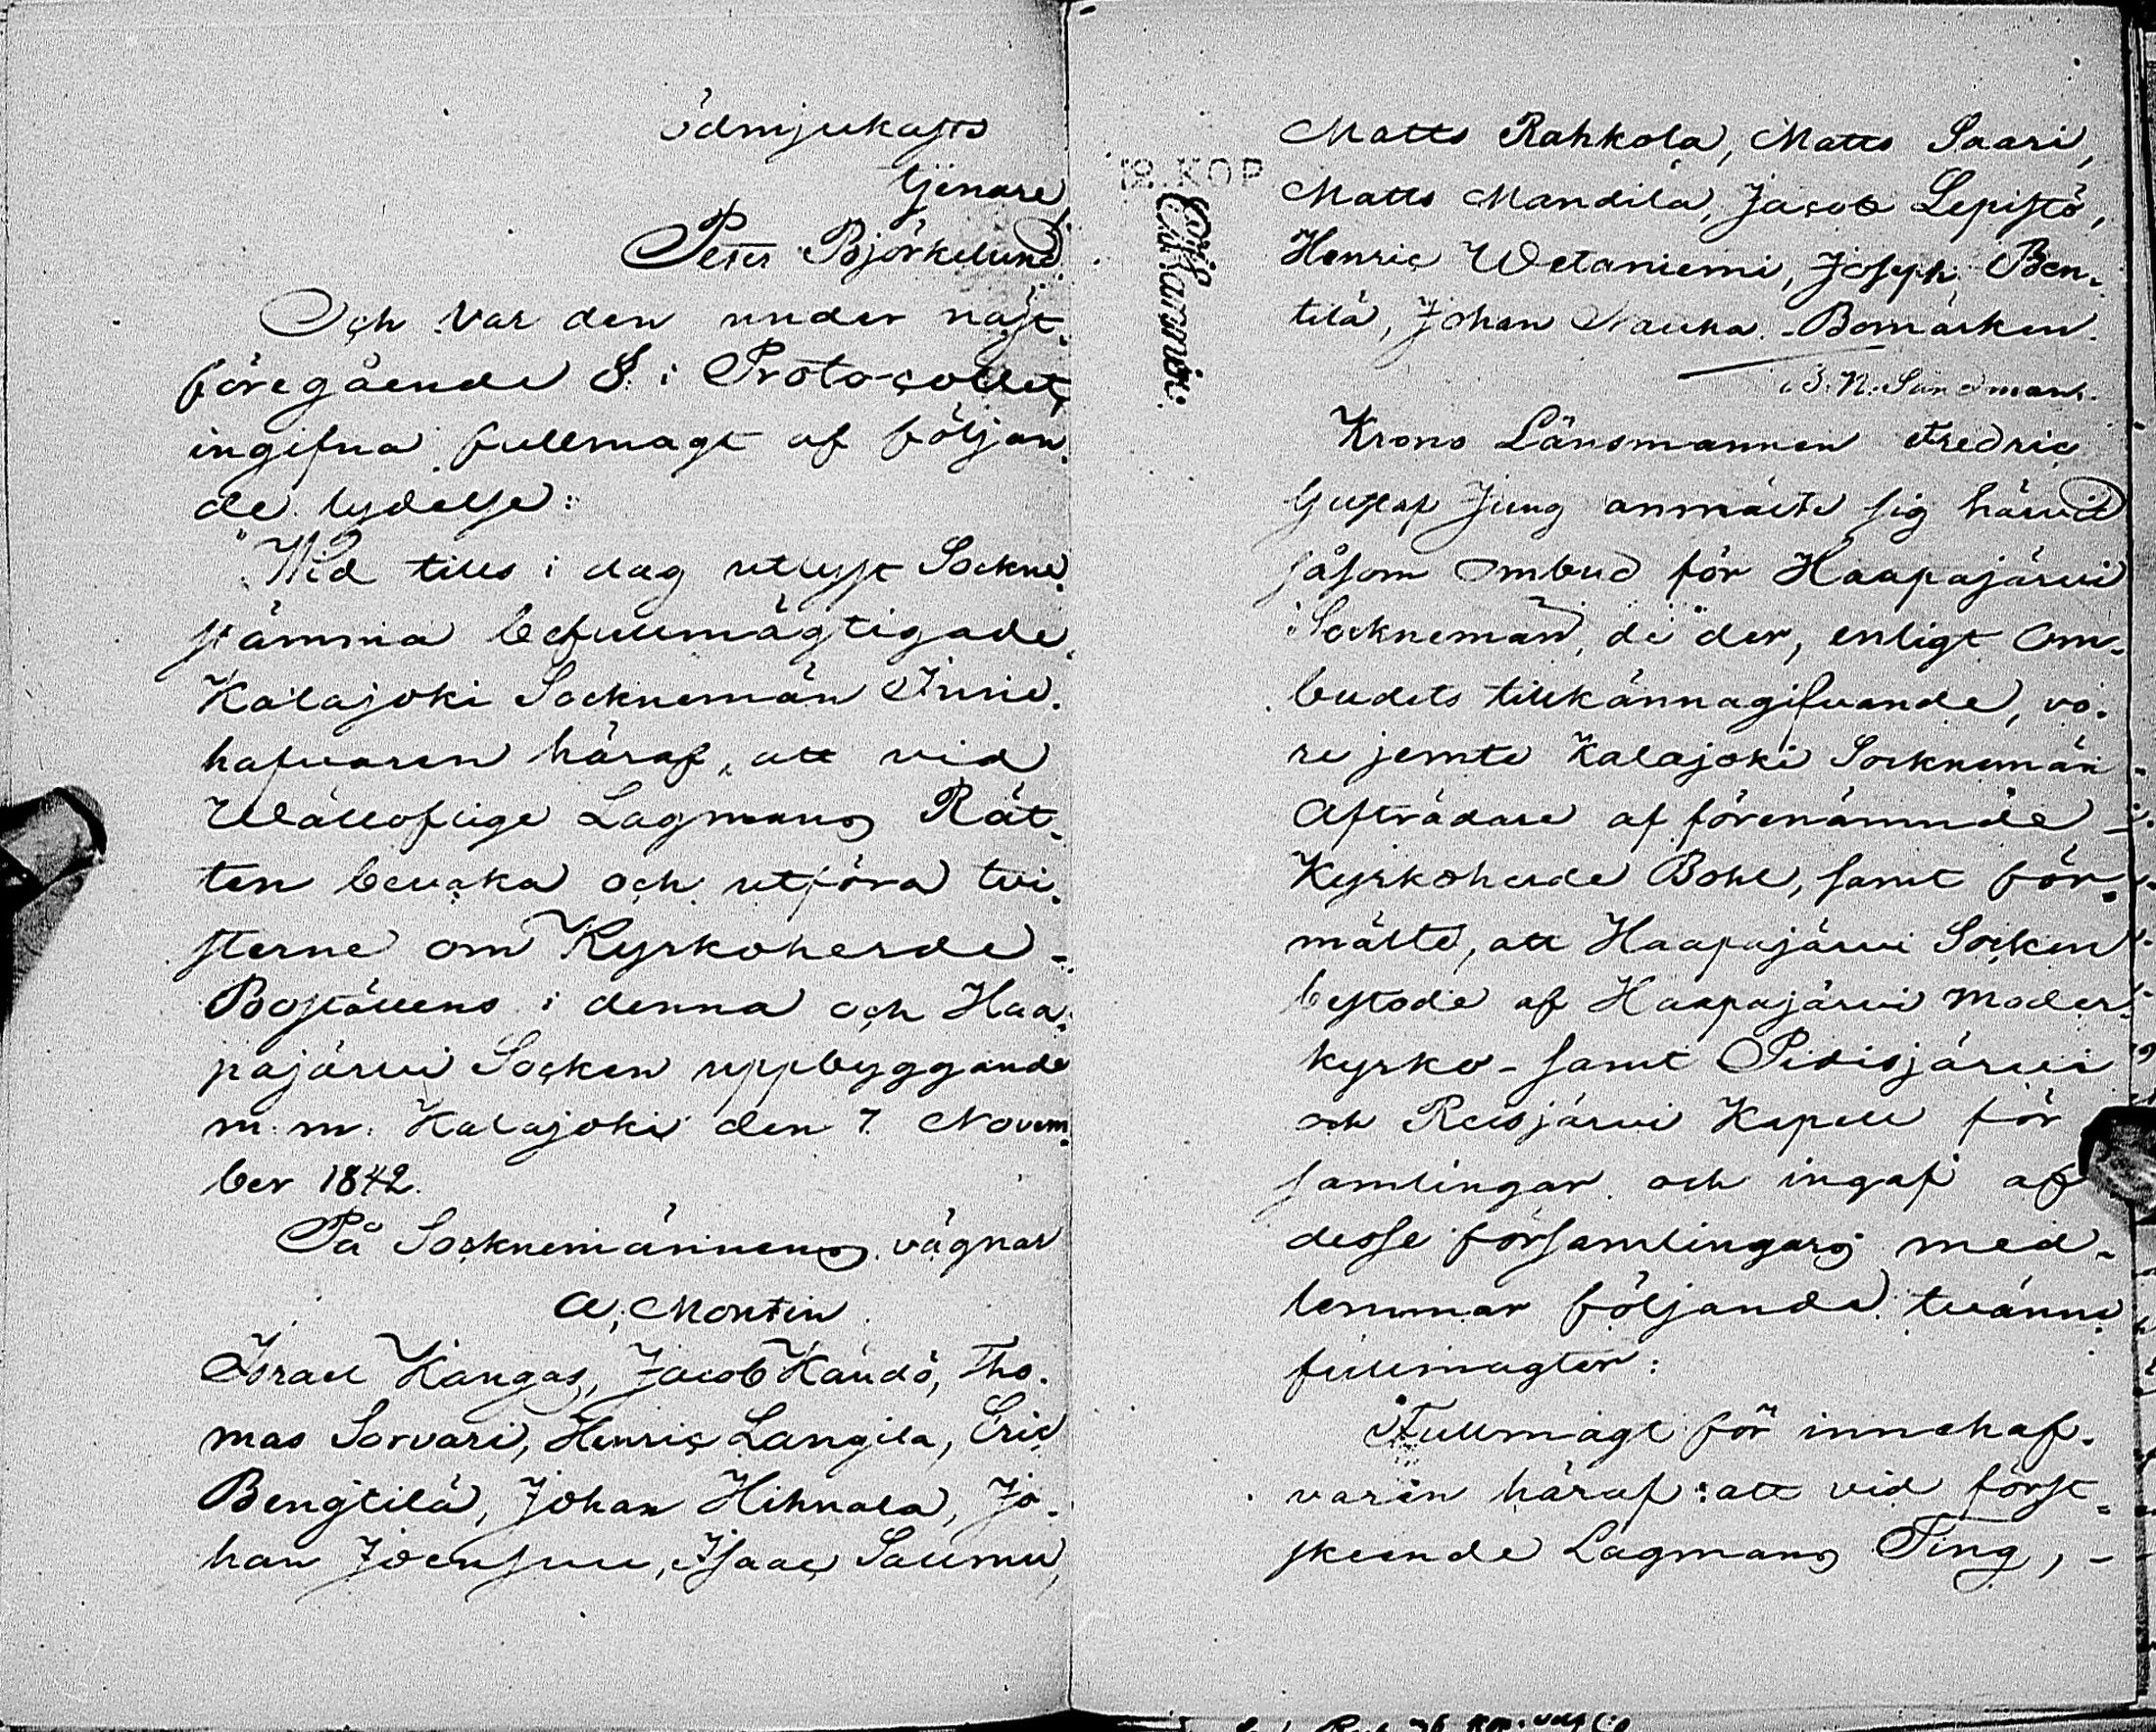 ödmjukaste
tjenare
Peter Björkelund
Och var den under näst¬
föregående § i Protocollet
ingifna fullmagt af följan¬
de lydelse:
"Wid till i dag utlyst Sockne¬
stämma befullmägtigade
Kalajoki Socknemän Inne¬
hafvaren häraf, att vid
Wällofliga Lagmans Rät¬
ten bevaka och utföra tvi¬
sterne om Kyrkoherde-
Boställens i denna och Haa¬
pajärvi Socken uppbyggande
m. m. Kalajoki den 7 Novem¬
ber 1842.
På Socknemännens vägnar
A, Montin
Israel Kangas, Jacob Käudö, Tho¬
mas Sorvari, Henric Langila, Eric
Bengtilä, Johan Hihnala, Jo¬
han Joensuu, Isaac Saumu,
12. KOP
Matts Rahkola, Matts Saari,
Matts Mandila, Jacob Lepistö,
Henric Wetaniemi, Joseph Ben¬
tilä, Johan Nauha. Bomärken.
N. Sandman.
Krono Länsmannen Fredric
Gustaf Jung anmälte sig härvid
såsom Ombud för Haapajärvi
Socknemän, de der, enligt Om¬
budets tillkännagifvande, vo¬
re jemte Kalajoki Socknemän
Afträdare af förenämnde
Kyrkoherde Bohl, samt för¬
mälte, att Haapajärvi Socken
bestode af Haapajärvi Moder¬
kyrko- samt Pidisjärvi
och Reisjärvi Kapell för
samlingar och ingaf af
desse församlingars med¬
lemmar följande tvänne
fullmagter:
"Fullmagt för innehaf¬
varen häraf: att vid först¬
skeende Lagmans Ting, -